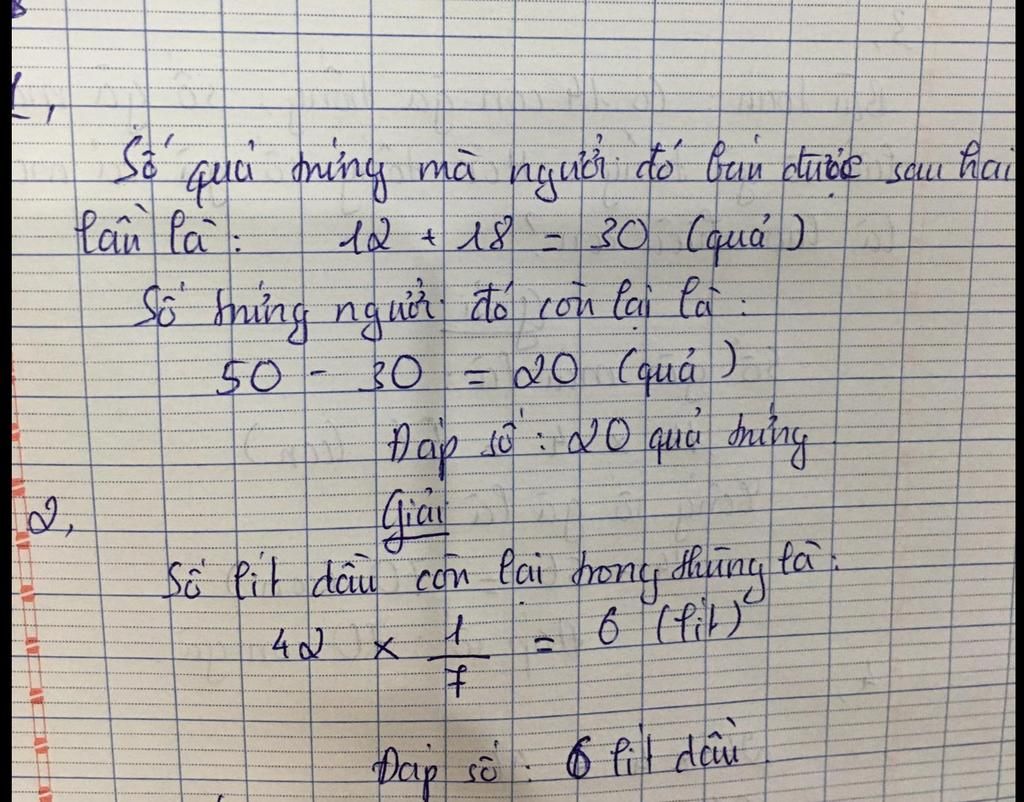 1,
Số quả trứng mà người đó bán được sau hai
lần là: 12 + 18 = 30 (quả)
Số trứng người đó còn lại là:
50 - 30 = 20 (quả)
Đáp số: 20 quả trứng
2, Giải
Số lít dầu còn lại trong thùng là:
42 × 1/7 = 6 (lít)
Đáp số: 6 lít dầu